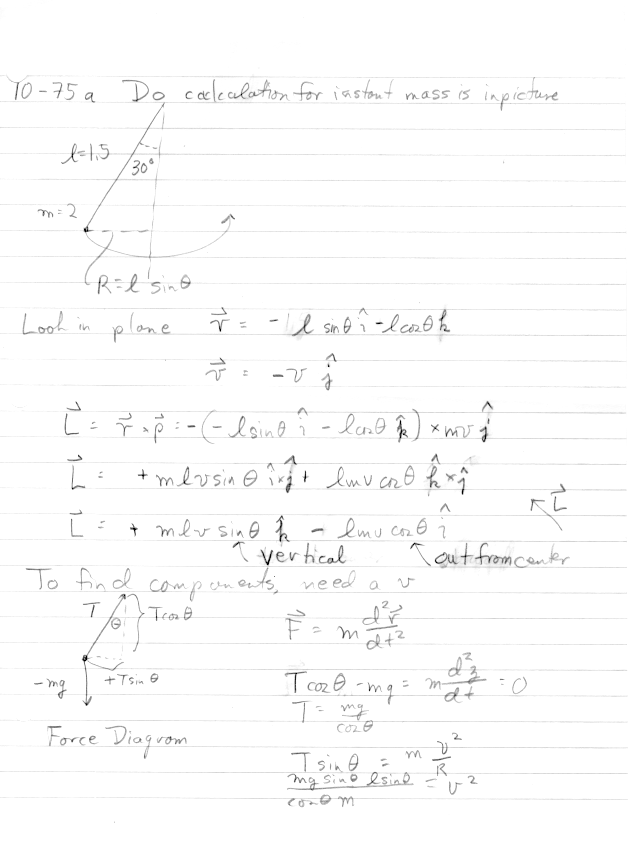 10-75a Do calculation for instant mass is in picture
l=1.5
30°
m=2
R=l sinθ
Look in plane r⃗ = - l sinθ î - l cosθ k̂
v⃗ = -v ĵ
L⃗ = r⃗ × p⃗ = -(-l sinθ î - l cosθ k̂) × mv ĵ
L⃗ = + mlv sinθ î×ĵ + lmv cosθ k̂×ĵ
L⃗ = + mlv sinθ k̂ - lmv cosθ î
L⃗
↑ vertical ↑ out from center
To find components, need a v
T
θ
T cosθ
F⃗ = m d²r⃗/dt²
-mg
+T sinθ
T cosθ - mg = m d²z/dt = 0
T = mg/cosθ
Force Diagram
T sinθ = m v²/R
mg sinθ l sinθ / cosθ m = v²